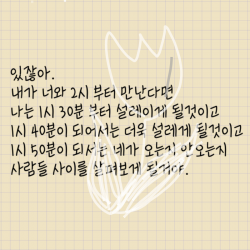 있잖아.
내가 너와 2시 부터 만난다면
나는 1시 30분 부터 설레이게 될것이고
1시 40분이 되어서는 더욱 설레게 될것이고
1시 50분이 되서는 네가 오는지 안오는지
사람들 사이를 살펴보게 될거야.